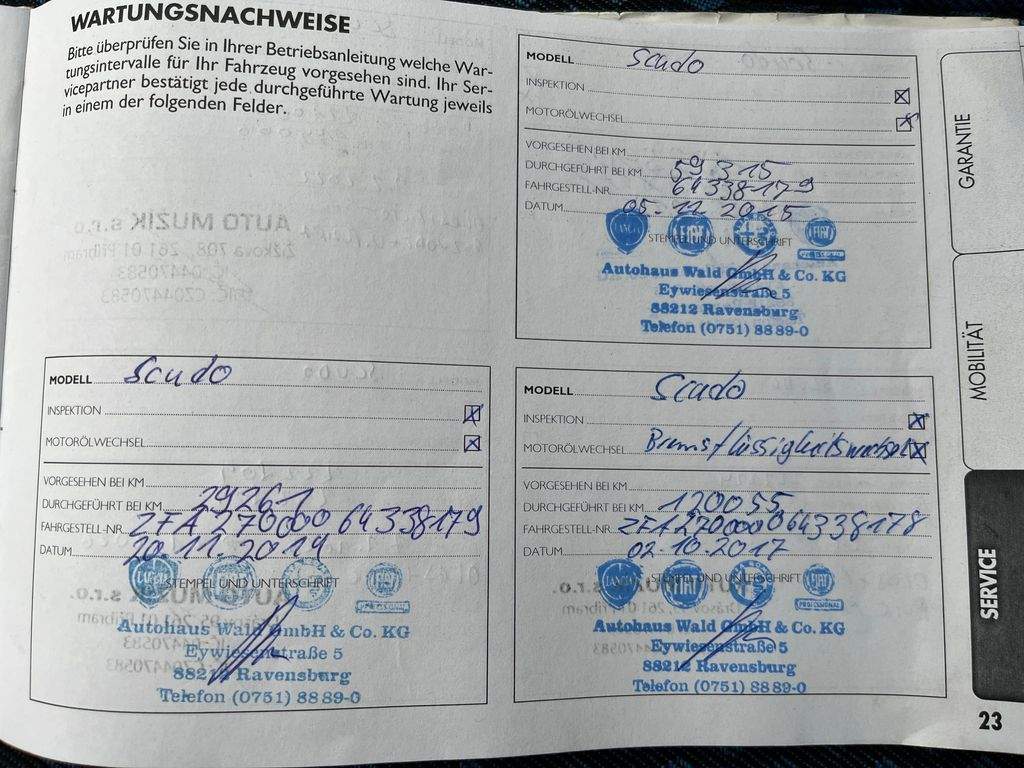 WARTUNGSNACHWEISE
Bitte überprüfen Sie in Ihrer Betriebsanleitung welche War-
tungsintervalle für Ihr Fahrzeug vorgesehen sind. Ihr Ser-
vicepartner bestätigt jede durchgeführte Wartung jeweils
in einem der folgenden Felder.
MODELL Scudo
INSPEKTION
MOTORÖLWECHSEL
VORGESEHEN BEI KM
DURCHGEFÜHRT BEI KM 59 315
FAHRGESTELL-NR. 64338179
DATUM 05.11.2015
LANCIA FIAT ALFA ROMEO FIAT PROFESSIONAL
STEMPEL UND UNTERSCHRIFT
Autohaus Wald GmbH & Co. KG
Eywiesenstraße 5
88212 Ravensburg
Telefon (0751) 88 89-0
MODELL Scudo
INSPEKTION
MOTORÖLWECHSEL
VORGESEHEN BEI KM
DURCHGEFÜHRT BEI KM 29261
FAHRGESTELL-NR. ZFA 270000 64338179
DATUM 20.11.2014
LANCIA FIAT PROFESSIONAL
STEMPEL UND UNTERSCHRIFT
Autohaus Wald GmbH & Co. KG
Eywiesenstraße 5
88212 Ravensburg
Telefon (0751) 88 89-0
MODELL Scudo
INSPEKTION
MOTORÖLWECHSEL Bremsflüssigkeitswechsel
VORGESEHEN BEI KM
DURCHGEFÜHRT BEI KM 120055
FAHRGESTELL-NR. ZFA 270000 64338178
DATUM 02.10.2017
LANCIA FIAT FIAT PROFESSIONAL
STEMPEL UND UNTERSCHRIFT
Autohaus Wald GmbH & Co. KG
Eywiesenstraße 5
88212 Ravensburg
Telefon (0751) 88 89-0
GARANTIE
MOBILITÄT
SERVICE
23